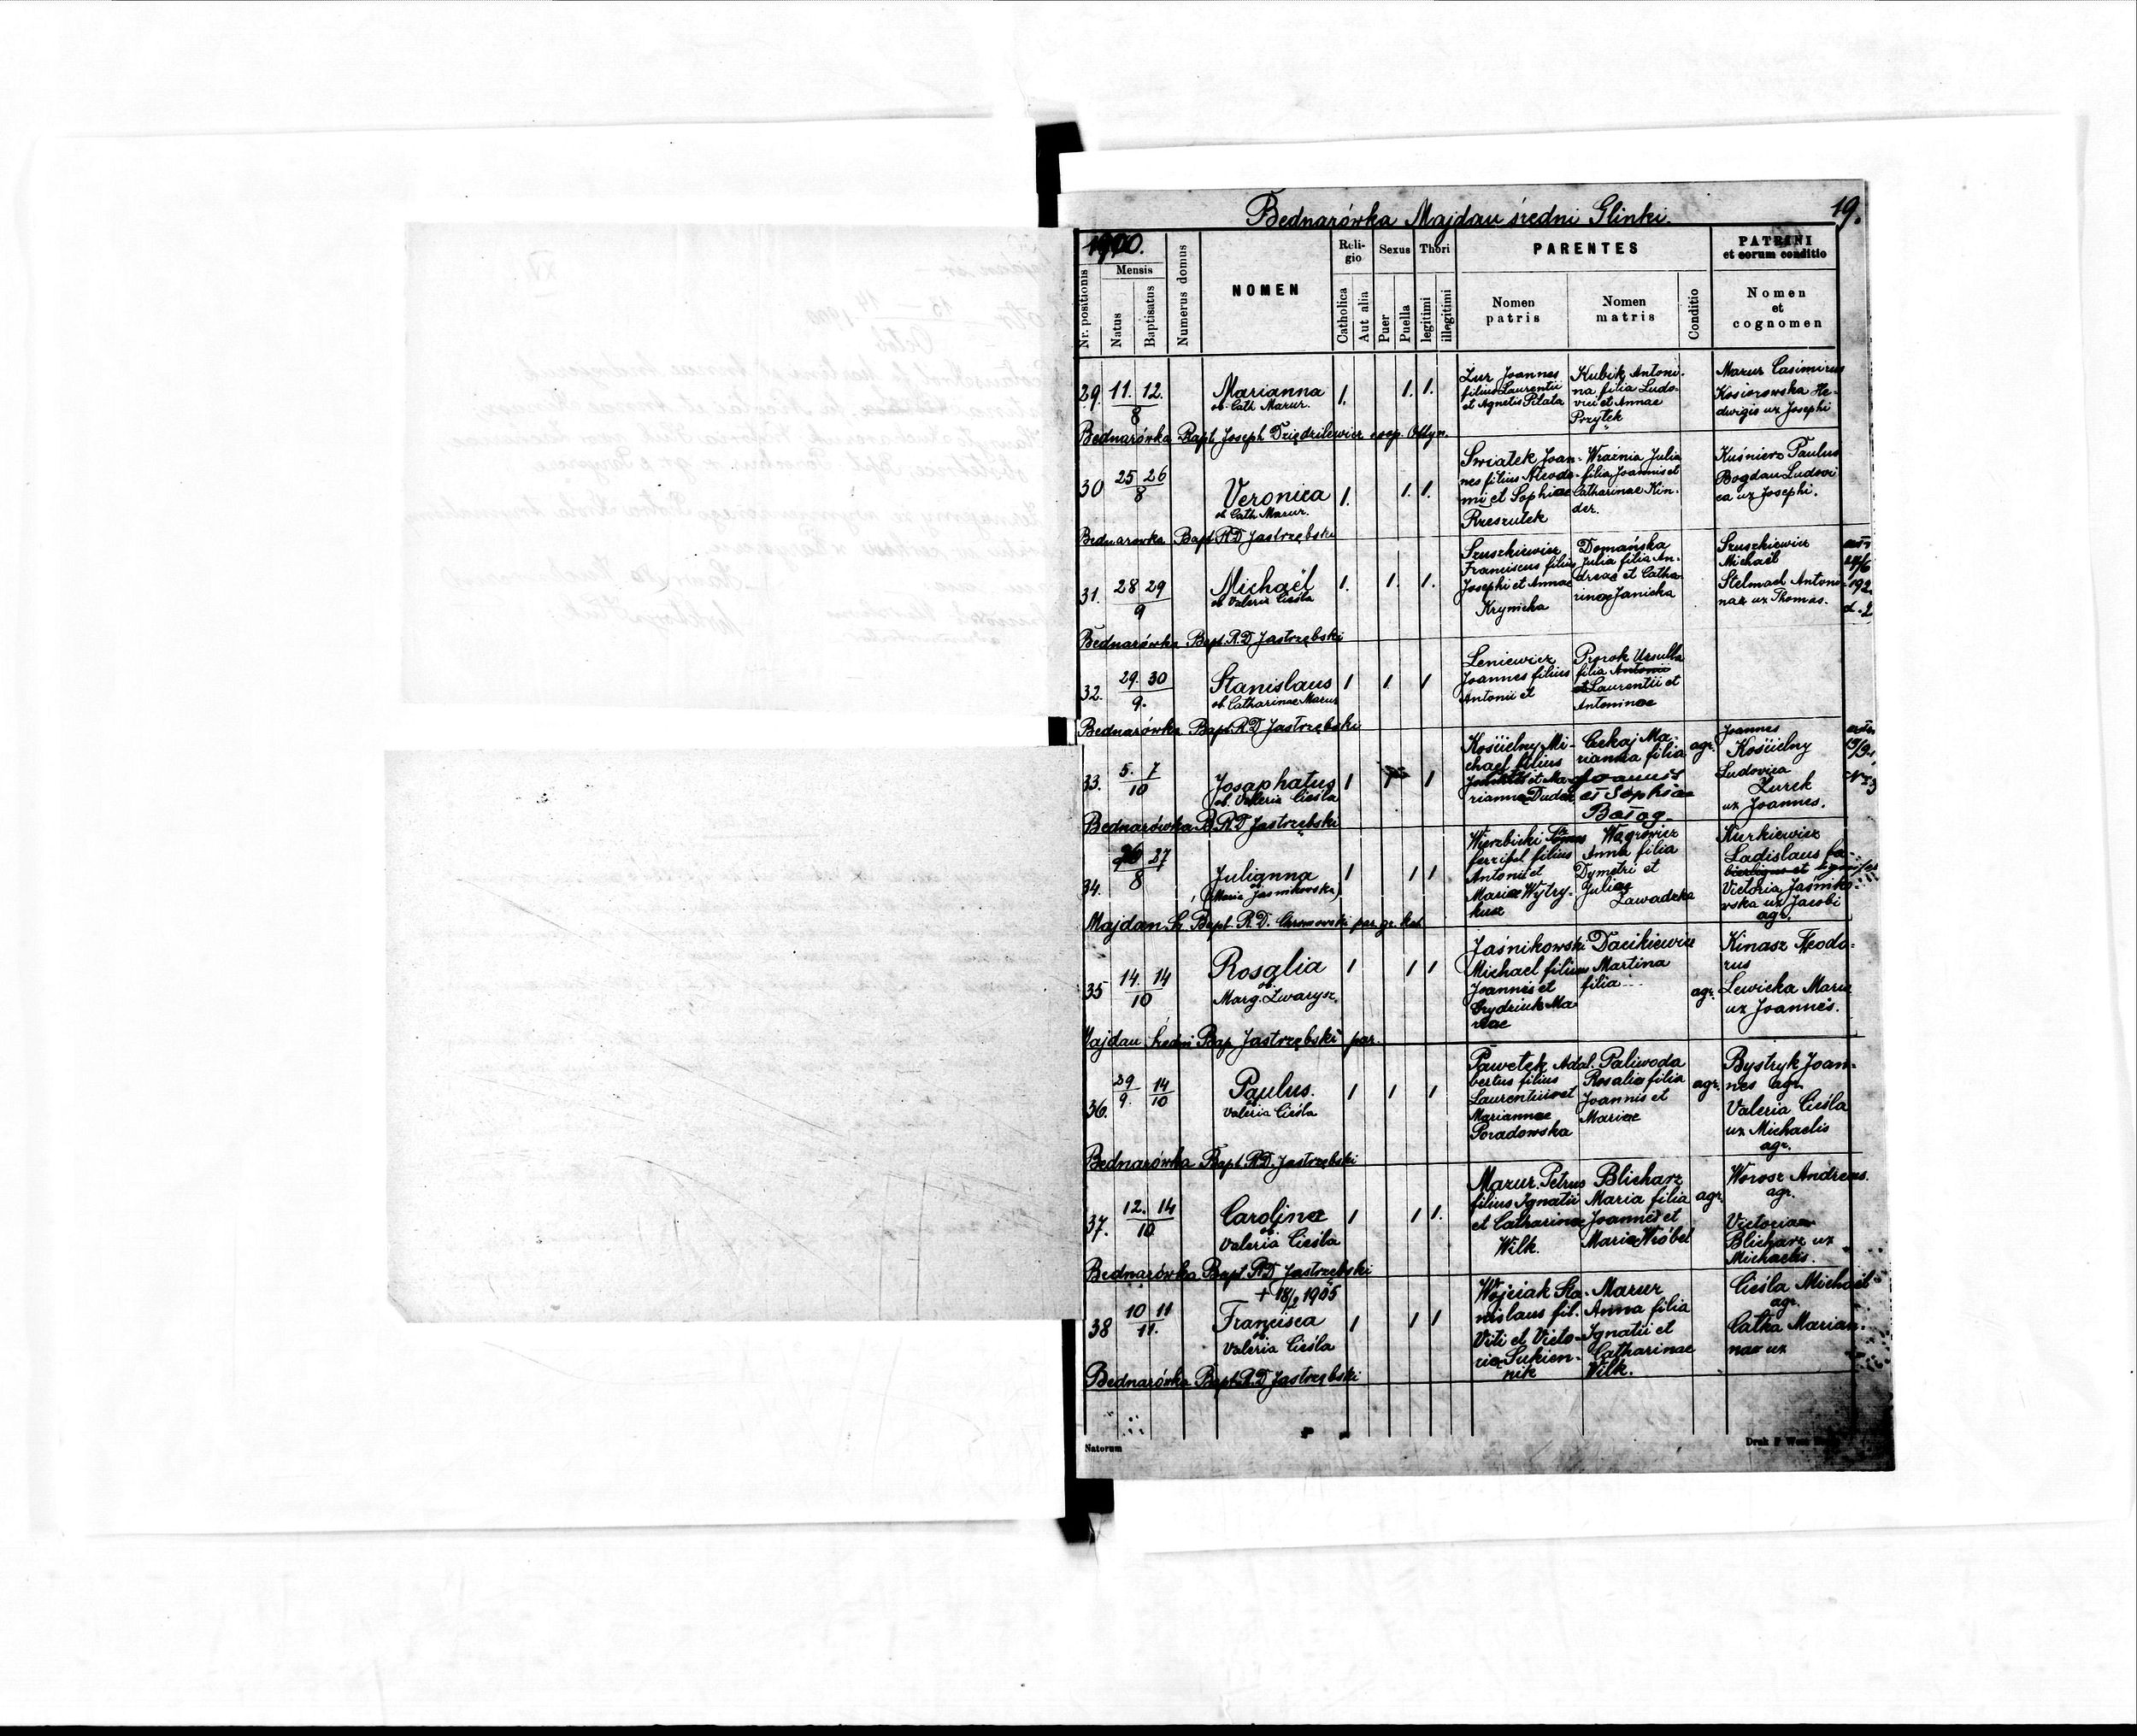 Bednarówka Majdan średni Glinki. 19.
1900.
Nr. positionis
Mensis
Natus
Baptisatus
Numerus domus
NOMEN
Religio
Catholica
Aut alia
Sexus
Puer
Puella
Thori
legitimi
illegitimi
PARENTES
Nomen patris
Nomen matris
Conditio
PATRINI
et eorum conditio
Nomen
et
cognomen
29. 11. 12. Marianna 1. 1. 1.
8
ob. Cath Mazur.
Zur Joannes
filius Laurentii
et Agnetis Pilata
Kubik Antoni-
na filia Ludo-
vici et Annae
Przytek
Mazur Casimirus
Kosiorowska He-
dwigis ux Josephi
Bednarówka Bapt. Joseph Dziędzilewicz coop. Ottyn.
30 25 26 Veronica 1. 1. 1.
8
ob. Cath Mazur.
Swiatek Joan-
nes filius Nicode-
mi et Sophiae
Rzeszutek
Wraźnia Julia
filia Joannis et
Catharinae Kin-
der.
Kuśnierz Paulus
Bogdan Ludovi
ca ux Josephi.
Bednarowka Bapt. RD Jastrzębski
31. 28 29 Michaël 1. 1. 1.
9
ob Valeria Cieśla
Szuszkiewicz
Franciscus filius
Josephi et Annae
Krynicka
Domańska
Julia filia An-
dreae et Catha
rinae Janicka
Szuszkiewicz
Michaël
Stelmach Antoni-
nae ux Thomas.
Bednarówka Bapt. R.D Jastrzębski
32. 29. 30 Stanislaus 1 1 1
9.
ob. Catharinae Mazur
Leniewicz
Joannes filius
Antonii et
Prorok Ursulla
filia Antonii
et Laurentii et
Antoninae
Bednarówka Bapt. RD Jastrzębski
33. 5. 7 Josaphatus 1 1
10
ob. Valeria Cieśla
Kościelny Mi-
chael filius
et Ma-
rianna Dudek
Cekaj Ma-
rianna filia
Joannis
et Sophiae
Batog
agr.
Joannes
Kościelny
Ludovica
Zurek
ux Joannes.
Bednarówka B. RD Jastrzębski
34. 26 27 Julianna 1 1 1
8
ob.
(Maria Jasnikowska)
Wierzbicki
filius
Antonii et
Mariae Wytry-
kusz
Wagrowicz
Anna filia
Dymetri et
Juliae
Zawadzka
Kurkiewicz
Ladislaus
Victoria Jaśniko-
wska ux Jacobi
agr.
Majdan Śr. Bapt. R.D. par. gr. kat
35 14. 14 Rosalia 1 1 1
10
ob.
Marg. Zwarysz.
Jaśnikowski
Michael filius
Joannis et
Grydziuk Ma-
riae
Dacikiewicz
Martina
filia...
agr.
Kinasz Teodo-
rus
Lewicka Maria
ux Joannis.
Majdan średni Bap. Jastrzębski par.
36. 29 14 Paulus. 1 1 1
9. 10
ob
Valeria Cieśla
Pawełek Adal-
bertus filius
Laurentii et
Mariannae
Poradowska
Paliwoda
Rosalia filia
Joannis et
Mariae
agr.
Bystryk Joan-
nes agr.
Valeria Cieśla
ux Michaelis
agr.
Bednarówka Bapt. RD. Jastrzębski
37. 12. 14 Carolina 1 1 1.
10
ob.
Valeria Cieśla
Mazur Petrus
filius Ignatii
et Catharinae
Wilk.
Blicharz
Maria filia
Joannis et
Mariae Wróbel
agr.
Worosz Andreas.
agr.
Victoria
Blicharz ux
Michaelis.
Bednarówka Bapt RD Jastrzębski
+ 18/2 1905
38 10 11 Francisca 1 1 1
11.
ob.
Valeria Cieśla
Wojciak Sta-
nislaus fil.
Viti et Victo-
riae Sukien-
nik
Mazur
Anna filia
Ignatii et
Catharinae
Wilk.
Cieśla Michaël
agr.
Catha Marian-
nae ux
Bednarówka Bapt. R.D Jastrzębski
Natorum